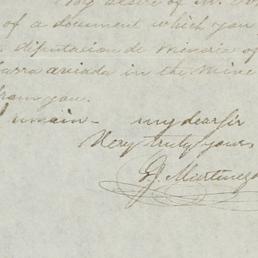 desire of Mr.
of a document which you
diputacion de mineria of
in the mine
from you.
remain - my dear Sir
Very truly yours
J. Martinez